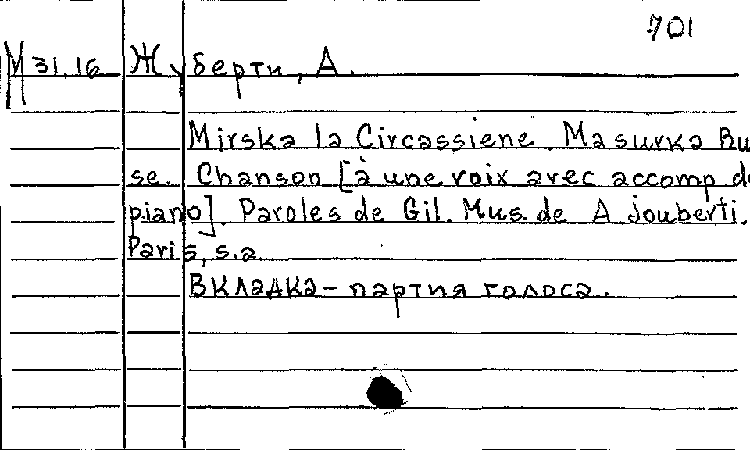 701
М 31.16 Жуберти, А.
Mirska la Circassiene. Masurka Ru
se. Chanson [à une voix avec accomp de
piano]. Paroles de Gil. Mus. de A Jouberti.
Paris, s.a.
Вкладка - партия голоса.